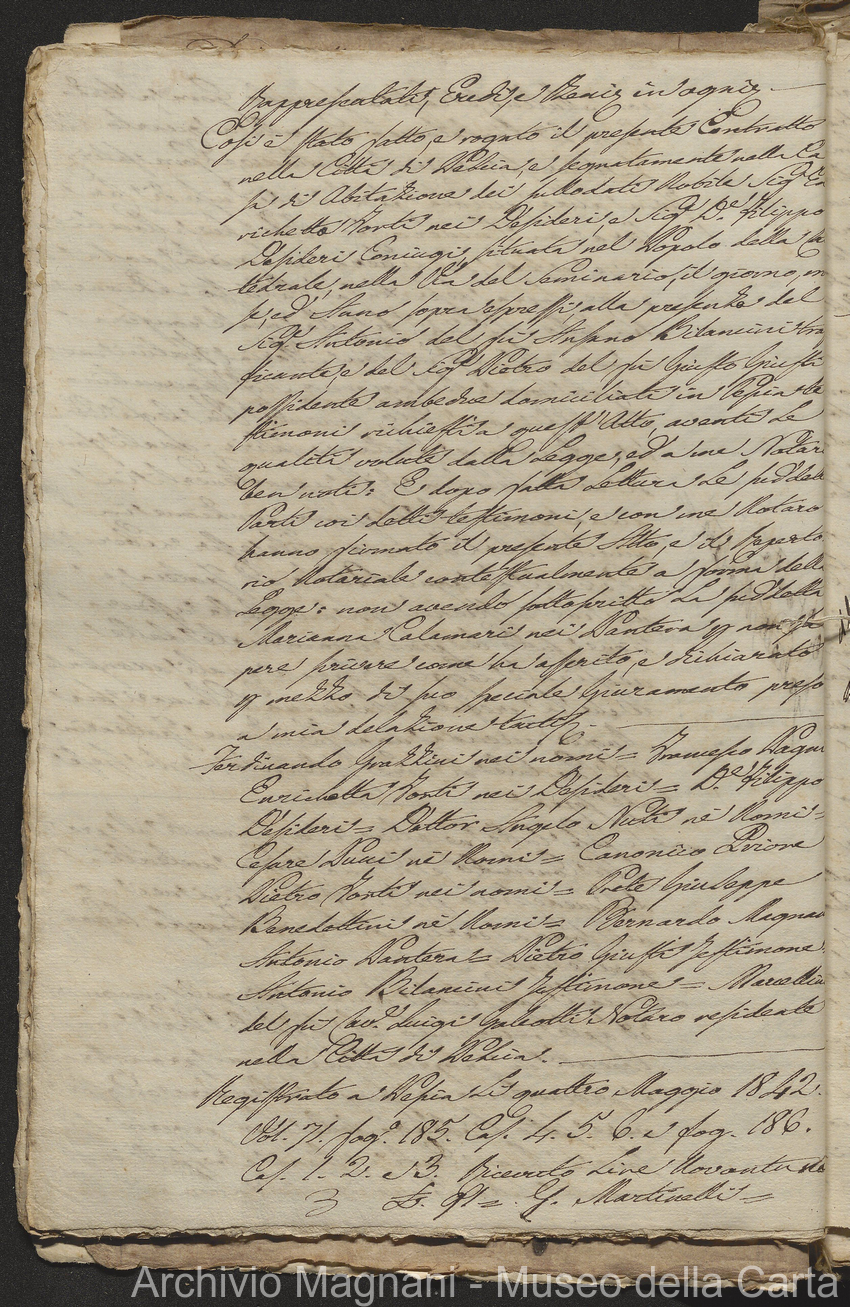 Rappresentati, Eredi, e Beni; in ogni
Così è stato fatto, e rogato il presente Contratto
nella Città di Pescia, e segnatamente nella Ca
sa di Abitazione dei sullodati Nobile Sigᵃ En
richetta Forti nei Desideri, e Sigᵉ Dᵉ Filippo
Desideri Coniugi, situata nel Popolo della Ca
tedrale, nella Via del Seminario, il giorno, me
se, ed Anno sopra espressi alla presenza del
Sigᵉ Antonio del fù Ansano Bilancini tra
ficante, e del Sigᵉ Pietro del fù Giusto Giusti
possidente ambedue domiciliati in Pescia te
stimoni richiesti a quest'Atto, aventi le
qualità volute dalla Legge, ed a me Notaro
ben noti: E dopo fatta Lettura Le suddette
Parti coi detti testimoni, e con me Notaro
hanno firmato il presente Atto, e il Reperto
rio Notariale contestualmente a forma della
Legge: non avendo sottoscritto La suddetta
Marianna Calamari nei Pantera p non sa
pere scrivere come ha asserito, e dichiarato
p mezzo di suo speciale Giuramento preso
a mia delazione tactis
Ferdinando Grazzini nei nomi = Francesco Pagni
Enrichetta Forti nei Desideri = D.ᵉ Filippo
Desideri = Dottor Angelo Nuti nè Nomi =
Cesare Pucci nè Nomi = Canonico Priore
Pietro Forti nei nomi = Prete Giuseppe
Benedettini nè Nomi = Bernardo Magnani
Antonio Pantera = Pietro Giusti Testimone
Antonio Bilancini Testimone = Marcellino
del fù Cav.ᵉ Luigi Galeotti Notaro residente
nella Città di Pescia.
Registrato a Pescia Li quattro Maggio 1842.
Vol. 71. fogᵒ. 185. Cas. 4. 5. 6. e fog. 186.
Cas. 1. 2. e 3. Ricevuto Lire Novantu
3 £. 91 = G. Martinelli =
Archivio Magnani - Museo della Carta